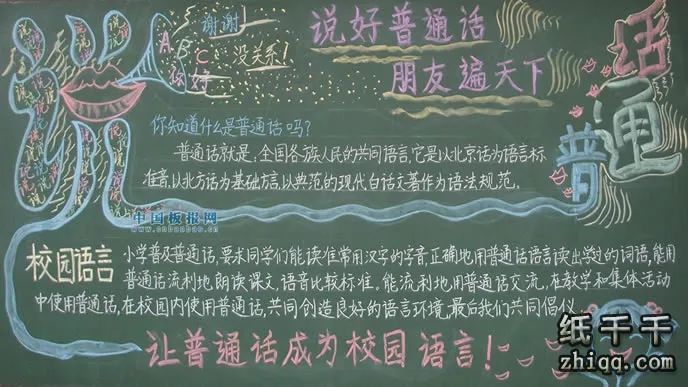 说
谢谢!
没关系!
A B C
你好
说好普通话
朋友遍天下
话
通
普
你知道什么是普通话吗?
普通话就是,全国各族人民的共同语言,它是以北京话为语言标
准音,以北方话为基础方言,以典范的现代白话文著作为语法规范。
中国板报网
校园语言
小学普及普通话,要求同学们能读准常用汉字的字音,正确地用普通话语言读出学过的词语,能用
普通话流利地朗读课文,语音比较标准。能流利地用普通话交流,在教学和集体活动
中使用普通话,在校园内使用普通话,共同创造良好的语言环境,最后我们共同倡仪
让普通话成为校园语言!
纸千千
zhiqq.com